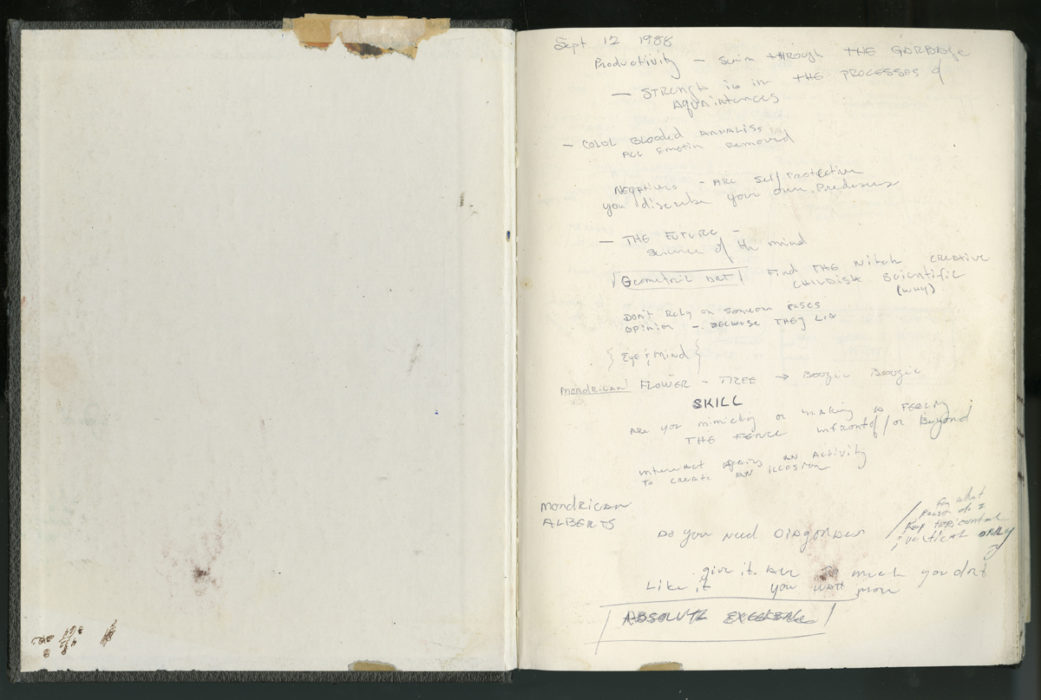 Sept 12 1986
Productivity - Swim through THE GARBAge
- STRength is in THE PROCESSES of
Aquaintences
- COLD Blooded ANNALISS
ALL Emotion Removed
Negatives - ARE Self Protective
you discribe your own
- THE FUTURE -
Science of the mind
Geometric ART Find THE Nitch CREATIVE
CHILDISH Scientific
(WHY)
DON'T Rely on Someone elses
opinion - BECAUSE THEY Lie
{ Eye & Mind }
Mondrican FLOWER - TREE → Boogie Boogie
SKILL
Are you mimicing or making A FEELING
THE FENCE infront of / or Beyond
AN Activity
to create AN ILLUSION
Mondrican
ALBERTS
Do you need DIAGONALS
For what
Reason do I
vertical ONLY
give it ALL so much you dont
Like it you WANT more
ABSOLUTE